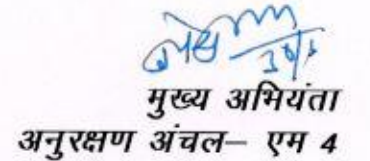 मुख्य अभियंता
अनुरक्षण अंचल– एम 4